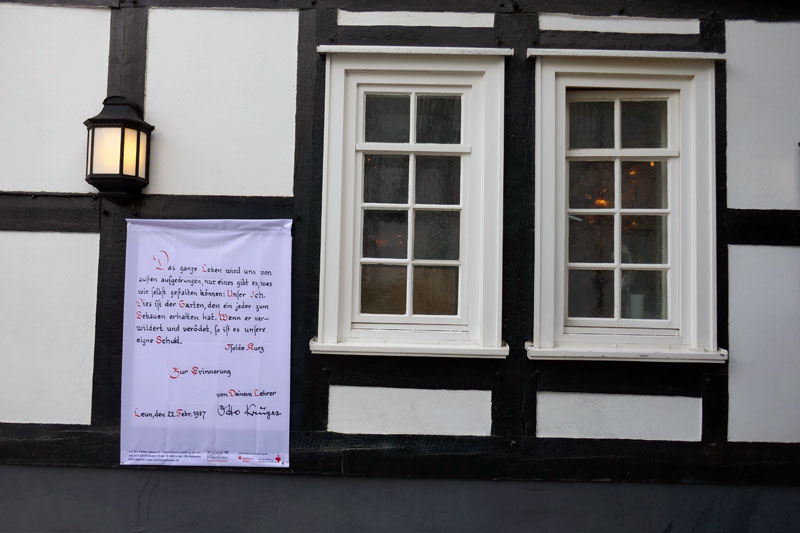 Das ganze Leben wird uns von
außen aufgedrungen, nur eines gibt es, was
wir selbst gestalten können: Unser Ich.
Dies ist der Garten, den ein jeder zum
Bebauen erhalten hat. Wenn er ver-
wildert und verödet, so ist es unsere
eigne Schuld.
Isolde Kurz
Zur Erinnerung
von Deinem Lehrer
Leun, den 22. Febr. 1937 Otto Krüger